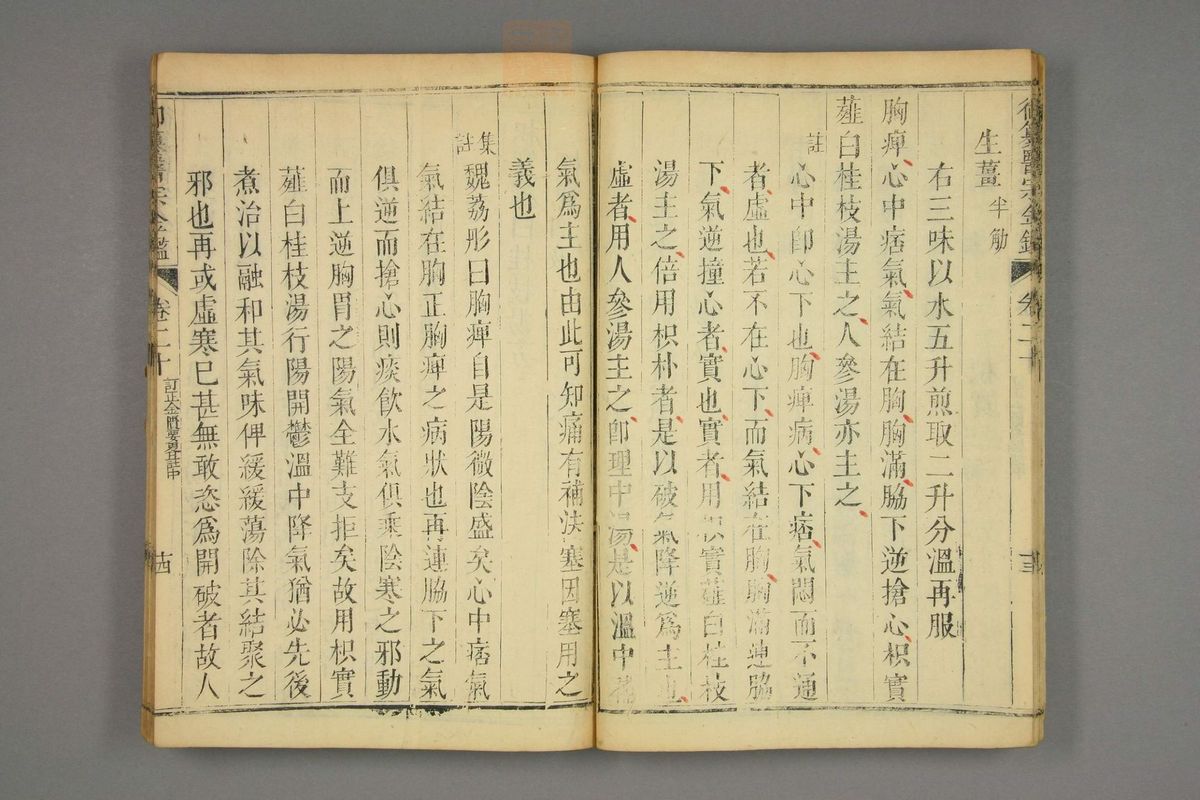 御纂醫宗金鑑 卷二十 十三
生薑 半觔
右三味以水五升煎取二升分溫再服
胸痺心中痞氣氣結在胸胸滿脇下逆搶心枳實
薤白桂枝湯主之人參湯亦主之
註 心中即心下也胸痺病心下痞氣悶而不通
者虛也若不在心下而氣結在胸胸滿連脇
下氣逆撞心者實也實者用枳實薤白桂枝
湯主之倍用枳朴者是以破氣降逆爲主也
虛者用人參湯主之即理中湯是以溫中補
氣爲主也由此可知痛有補法塞因塞用之
義也
集註 魏荔彤曰胸痺自是陽微陰盛矣心中痞氣
氣結在胸正胸痺之病狀也再連脇下之氣
俱逆而搶心則痰飲水氣俱乘陰寒之邪動
而上逆胸胃之陽氣全難支拒矣故用枳實
薤白桂枝湯行陽開鬱溫中降氣猶必先後
煮治以融和其氣味俾緩緩蕩除其結聚之
邪也再或虛寒已甚無敢恣爲開破者故人
御纂醫宗金鑑 卷二十 訂正金匱要畧註中 十四